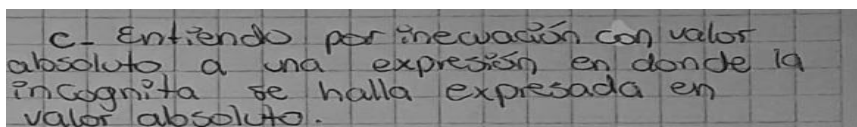 c- Entiendo por inecuación con valor
absoluto a una expresión en donde la
incognita se halla expresada en
valor absoluto.